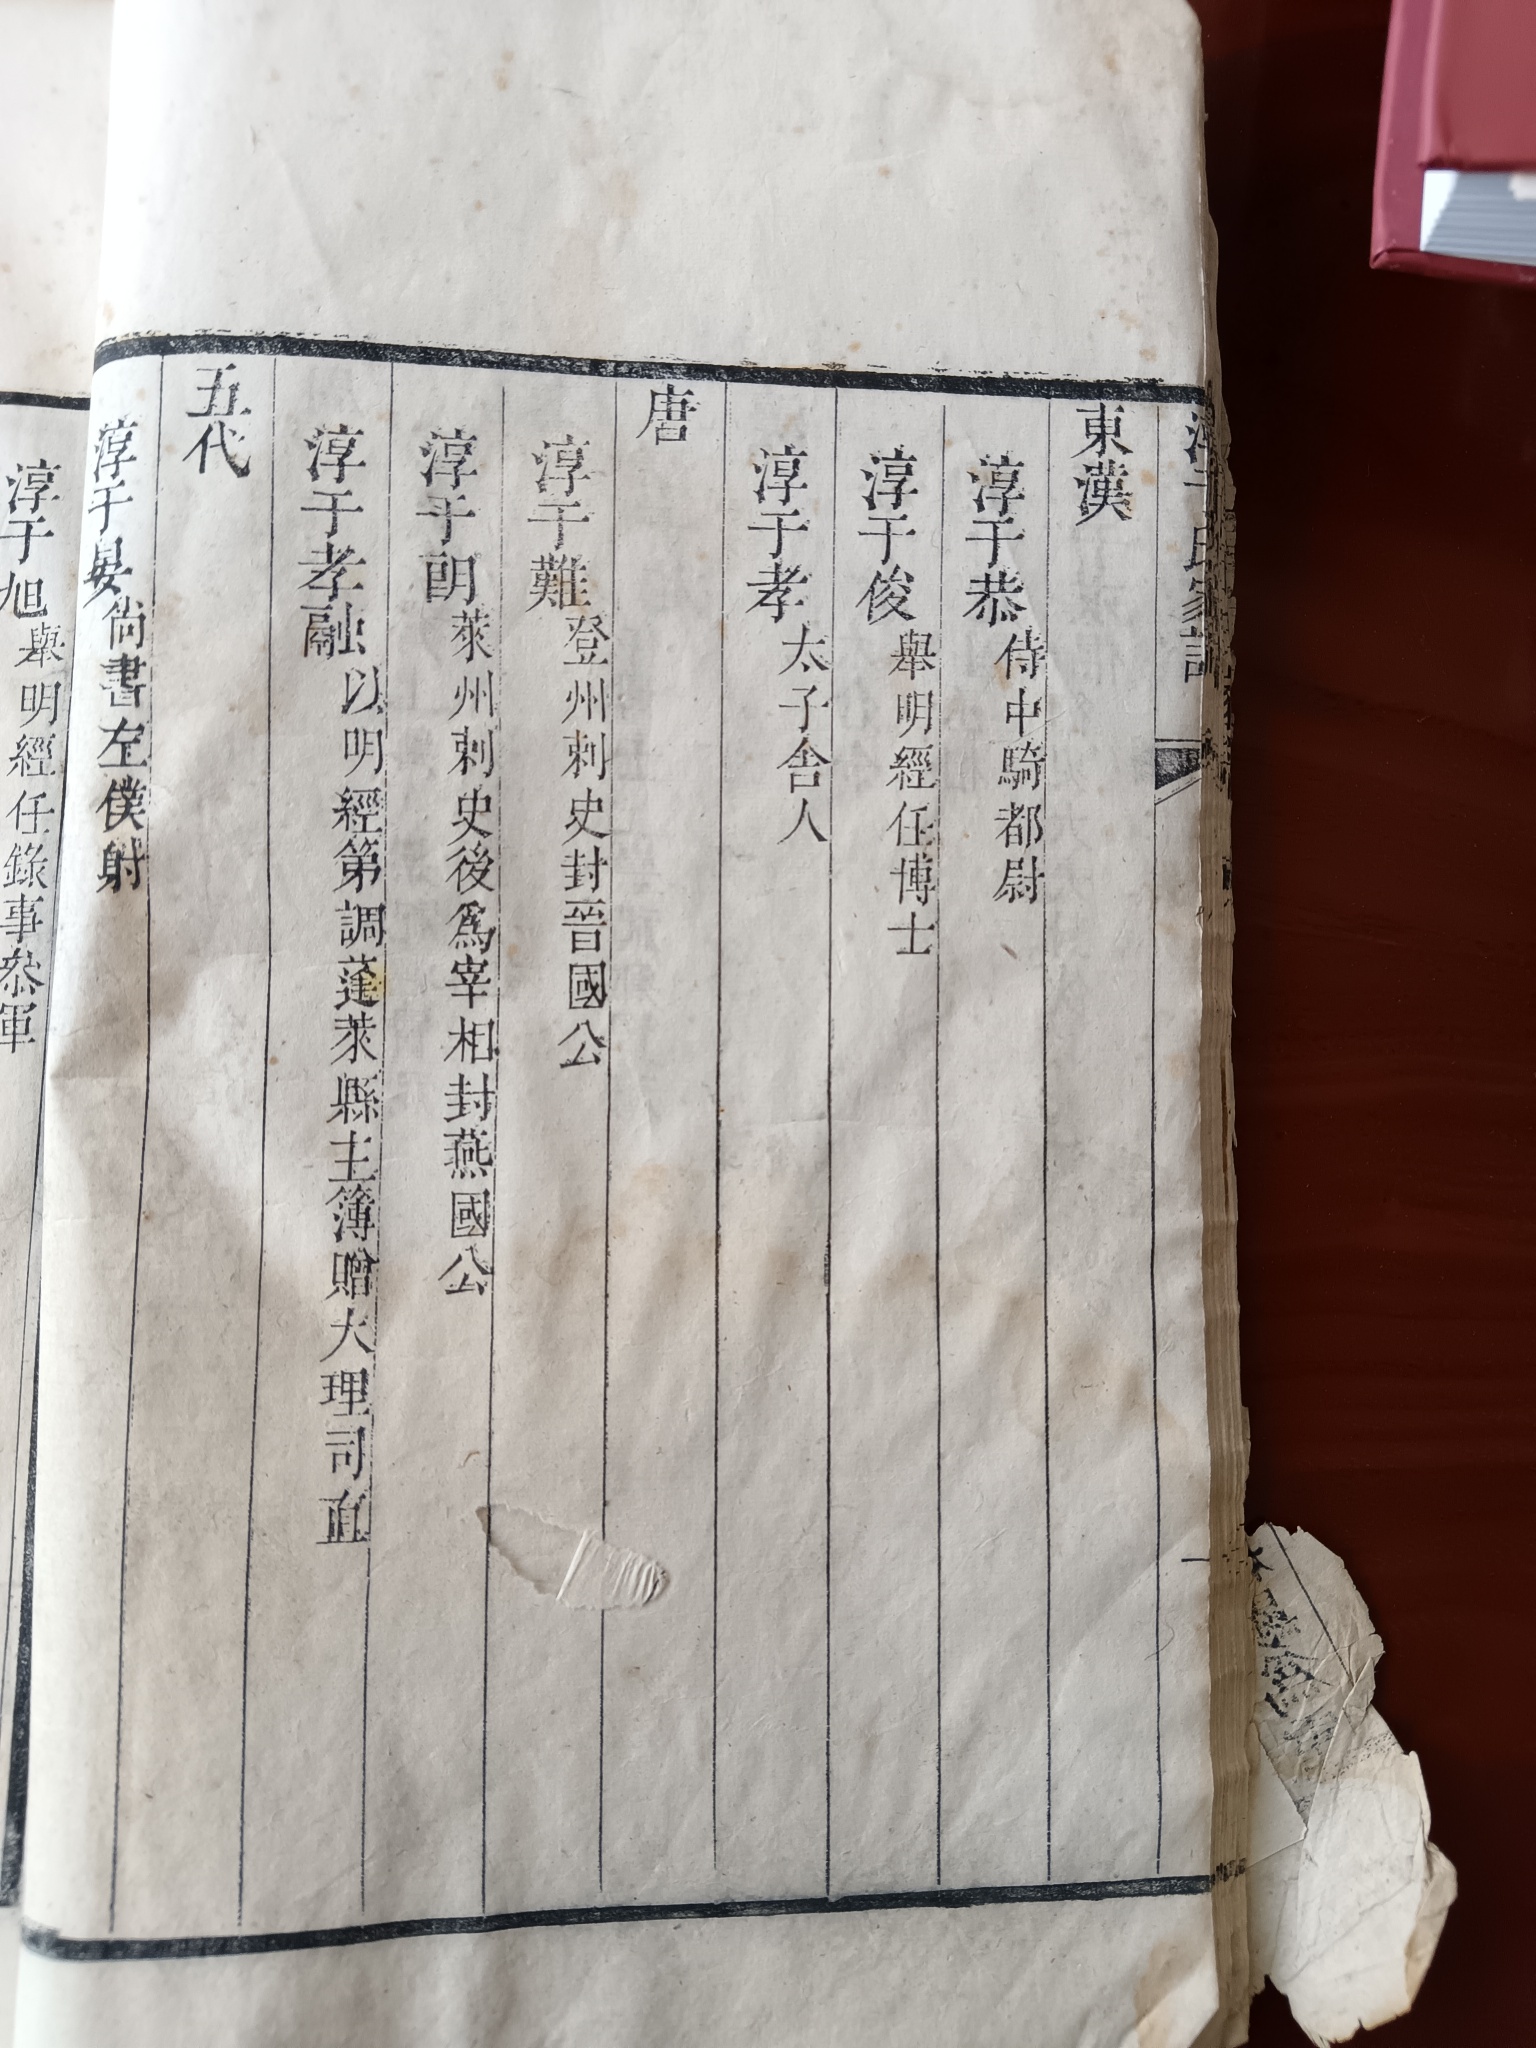 淳于氏家譜
東漢
淳于恭侍中騎都尉
淳于俊舉明經任博士
淳于孝太子舍人
唐
淳于難登州刺史封晉國公
淳于朗萊州刺史後爲宰相封燕國公
淳于孝融以明經第調蓬萊縣主簿贈大理司直
五代
淳于晏尚書左僕射
淳于旭舉明經任錄事叅軍